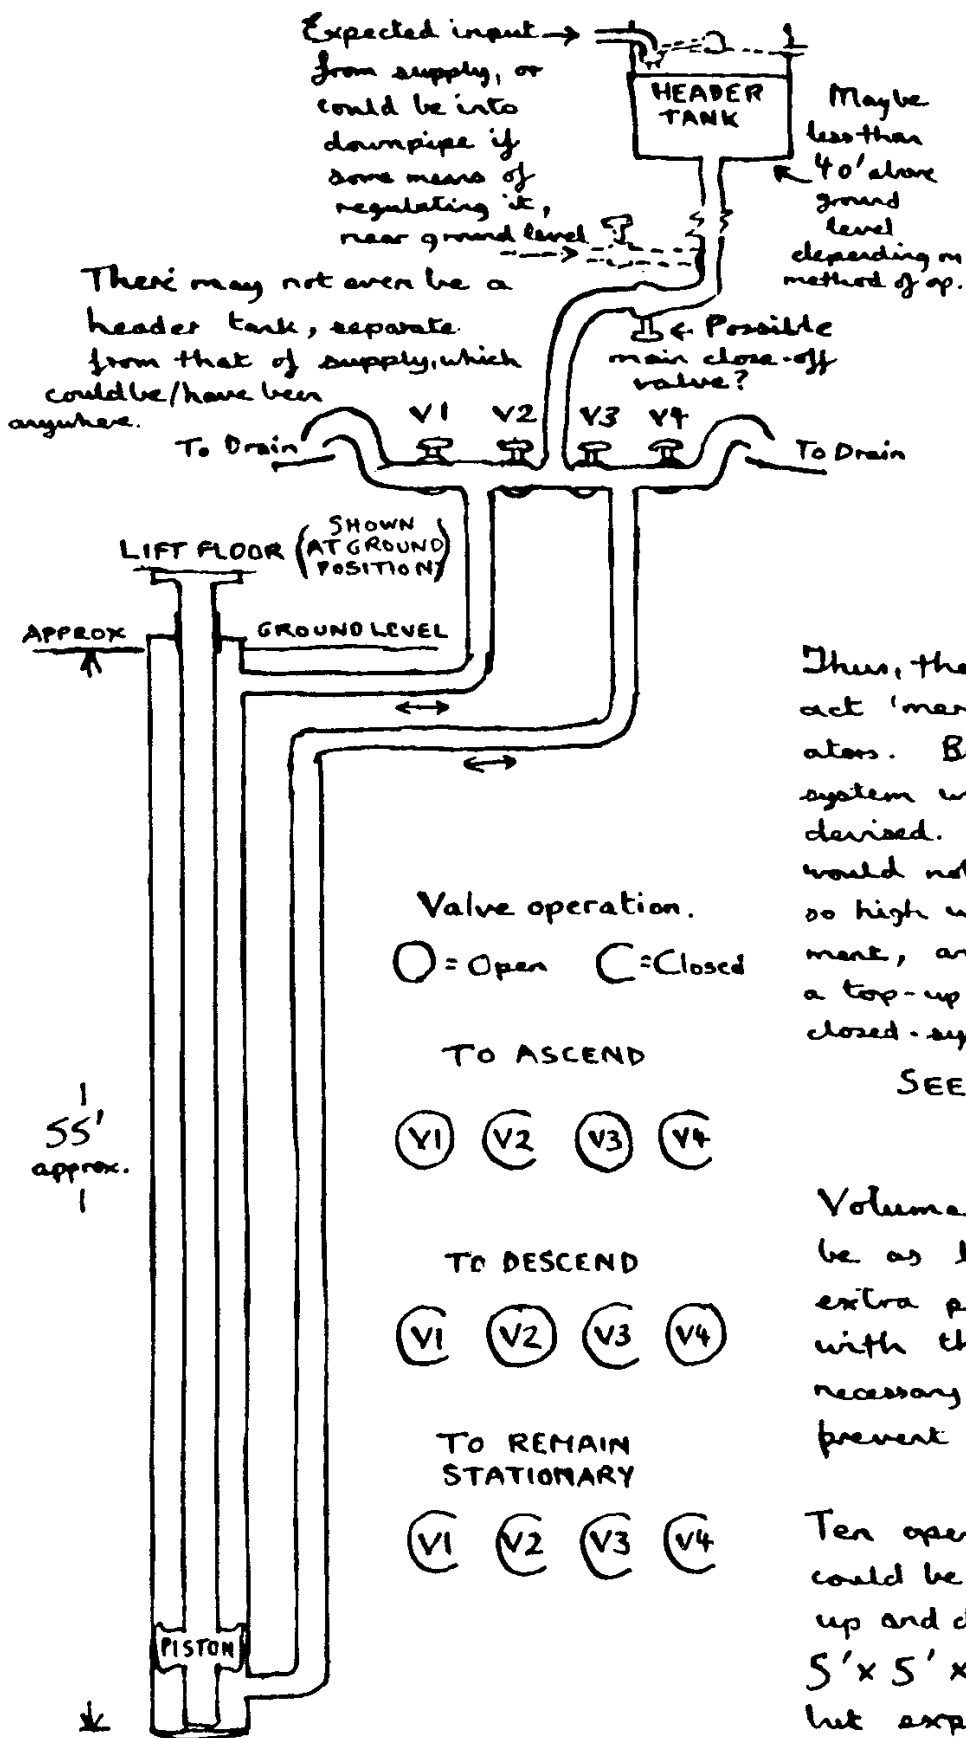 Expected input
from supply, or
could be into
downpipe if
some means of
regulating it,
near ground level
HEADER
TANK
Maybe
less than
40' above
ground
level
depending on
method of op.
There may not even be a
header tank, separate
from that of supply, which
could be/have been
anywhere.
Possible
main close-off
valve?
V1 V2 V3 V4
To Drain
To Drain
LIFT FLOOR (SHOWN
AT GROUND
POSITION)
APPROX
GROUND LEVEL
55'
approx.
PISTON
Valve operation.
O = Open C = Closed
TO ASCEND
V1 V2 V3 V4
TO DESCEND
V1 V2 V3 V4
TO REMAIN
STATIONARY
V1 V2 V3 V4
Thus, the
act 'mer
ators. B
system w
devised.
would not
so high w
ment, an
a top-up
closed-sy
SEE
Volume
be as l
extra p
with th
necessary
prevent
Ten oper
could be
up and d
5' x 5' x
but exp